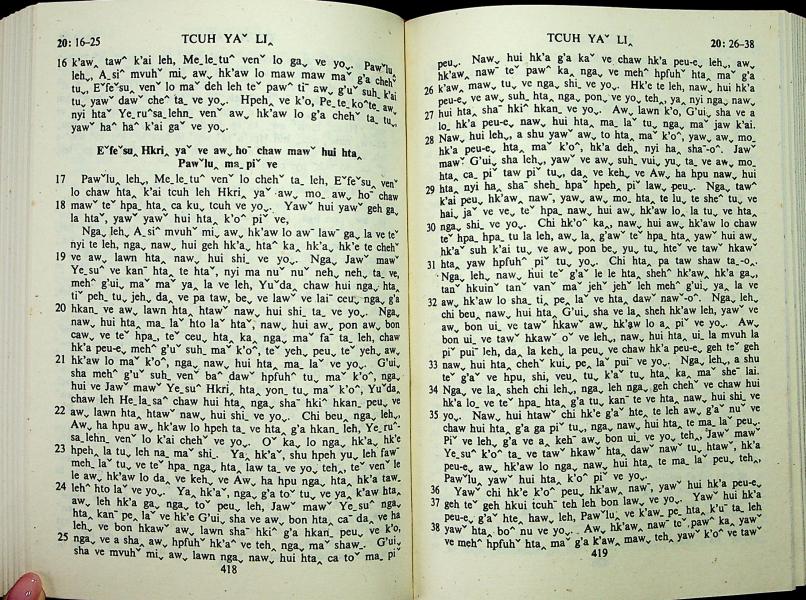 20: 16–25
TCUH YAˇ LI‸
16 k'aw‸ tawˆ k'ai leh, Me˯le˯tuˆ venˇ lo ga˯ ve yo˯. Pawˇlu‸
leh˯, A˯siˆ mvuhˇ mi˯ aw˯ hk'aw lo maw maw maˇ g'a chehˇ
tu˯, Eˇfeˇsu‸ venˇ lo maˇ deh leh teˇ pawˆ tiˉ aw˯ g'uˇ suh‸ k'ai
tu˯ yawˇ dawˇ cheˆ ta‸ ve yo˯. Hpehˇ ve k'o, Pe˯te˯koˆte‸ aw˯
nyi htaˇ Ye˯ruˆsa˯lehn‸ venˇ aw˯ hk'aw lo g'a chehˇ ta‸ tu˯,
yawˇ haˆ haˆ k'ai gaˇ ve yo˯.
Eˇfeˇsu‸ Hkri‸ yaˇ ve aw˯ hoˉ chaw mawˇ hui hta‸
Pawˇlu‸ ma˯ piˇ ve
17 Pawˇlu‸ leh˯, Me˯le˯tuˆ venˇ lo chehˇ ta‸ leh, Eˇfeˇsu‸ venˇ
lo chaw hta‸ k'ai tcuh leh Hkri‸ yaˇ aw˯ mo‸ aw˯ hoˉ chaw
18 mawˇ teˇ hpa‸ hta‸ ca ku‸ tcuh ve yo˯. Yawˇ hui yawˇ geh ga‸
la htaˇ, yawˇ yawˇ hui hta‸ k'oˆ piˇ ve,
Nga˯ leh˯, A˯siˆ mvuhˇ mi˯ aw˯ hk'aw lo awˇ lawˇ ga‸ la ve teˇ
nyi te leh, nga˯ naw˯ hui geh hk'a‸ htaˆ ka‸ hk'a‸ hk'e te chehˇ
19 ve aw˯ lawn hta‸ naw˯ hui shi‸ ve yo˯. Nga˯ Jawˇ mawˇ
Ye˯suˆ ve kanˉ hta‸ te htaˇ, nyi ma nuˇ nuˇ neh˯ neh˯ ta‸ ve,
mehˆ g'ui‸ maˇ maˇ ya‸ la ve leh, Yuˇda‸ chaw hui nga˯ hta‸
tiˇ peh‸ tu‸ jeh‸ da‸ ve pa taw, be˯ ve lawˇ ve laiˉ ceu˯ nga˯ g'a
20 hkan˯ ve aw˯ lawn hta‸ htawˇ naw˯ hui shi‸ ta‸ ve yo˯. Nga˯
naw˯ hui hta‸ ma‸ laˇ hto laˇ htaˇ, naw˯ hui aw˯ pon aw˯ bon
caw˯ ve teˇ hpa‸ teˇ ceu‸ hta‸ ka‸ nga˯ maˇ faˉ ta‸ leh, chaw
hk'a peu-e˯ mehˆ g'uˇ suh‸ maˇ k'oˆ, teˇ yeh‸ peu‸ teˇ yeh˯ aw˯
21 hk'aw lo maˇ k'oˆ, nga˯ naw˯ hui hta‸ ma‸ laˇ ve yo˯. G'ui‸
sha mehˆ g'uˇ suh‸ venˇ baˆ dawˇ hpfuhˆ tu‸ maˇ k'oˆ, nga˯
hui ve Jawˇ mawˇ Ye˯suˆ Hkri‸ hta‸ yon‸ tu‸ maˇ k'oˆ, Yuˇda‸
chaw leh He˯la˯saˆ chaw hui hta‸ nga˯ shaˉ hkiˆ hkan‸ peu‸ ve
22 aw˯ lawn hta‸ htawˇ naw˯ hui shi‸ ve yo˯. Chi beu‸ nga˯ leh˯,
Aw˯ ha hpu aw˯ hk'aw lo hpeh ta‸ ve hta‸ g'a hkan‸ leh, Ye˯ruˆ-
sa˯lehn‸ venˇ lo k'ai chehˇ ve yo˯. Oˇ ka‸ lo nga˯ hk'a‸ hk'e
23 hpeh‸ la tu‸ leh na‸ maˇ shi‸. Ya‸ hk'aˇ, shu hpeh yu‸ leh fawˇ
meh‸ laˇ tu‸ ve teˇ hpa‸ nga˯ hta‸ law ta‸ ve yo˯ teh‸, teˇ venˇ le
le aw˯ hk'aw lo da‸ ve keh‸ ve Aw˯ ha hpu nga˯ hta‸ hk'a taw˯
24 lehˆ hto laˇ ve yo˯. Ya‸ hk'aˇ, nga˯ g'a toˇ tu˯ ve ya‸ k'aw hta‸
aw˯ leh hk'a ga‸ nga˯ toˇ peu‸ leh, Jawˇ mawˇ Ye˯suˆ nga˯
hta‸ kanˉ pe‸ laˇ ve hk'e G'ui‸ sha ve aw˯ bon hta‸ caˇ da‸ ve ha
leh˯ ve bon hkawˇ aw˯ lawn shaˉ hkiˆ g'a hkan‸ peu‸ ve k'o,
25 nga˯ ve a sha‸ aw˯ hpfuh hk'aˇ ve teh‸ nga˯ maˇ shaw˯. G'ui‸
sha ve mvuhˇ mi‸ aw˯ lawn nga˯ naw˯ hui hta‸ ca toˇ ma‸ piˇ
418
TCUH YAˇ LI‸
20: 26–38
peu˯. Naw˯ hui hk'a g'a kaˇ ve chaw hk'a peu-e˯ leh˯, aw˯
hk'aw‸ nawˉ teˇ pawˆ ka‸ nga˯ ve mehˆ hpfuhˇ hta‸ maˇ g'a
26 k'aw‸ maw˯ tu˯ ve nga˯ shi‸ ve yo˯. Hk'e te leh, naw˯ hui hk'a
peu-e˯ ve aw˯ suhˉ hta‸ nga˯ pon˯ ve yo˯ teh‸, ya‸ nyi nga˯ naw˯
27 hui hta‸ shaˉ hkiˆ hkan˯ ve yo˯. Aw˯ lawn k'o, G'ui‸ sha ve a
lo‸ hk'a peu-e˯ naw˯ hui hta‸ ma‸ laˇ tu˯ nga˯ maˇ jaw k'ai.
28 Naw˯ hui leh˯, a shu yawˇ aw˯ to hta‸ maˇ k'oˆ, yaw˯ aw˯ mo‸
hk'a peu-e˯ hta‸ maˇ k'oˆ, hk'a deh nyi ha‸ shaˉ-oˆ. Jawˇ
mawˇ G'ui‸ sha leh˯, yawˇ ve aw˯ suh˯ vui˯ yu‸ ta‸ ve aw˯ mo‸
hta‸ ca‸ piˇ taw piˇ tu˯, da‸ ve keh‸ ve A˯ ha hpu naw˯ hui
29 hta‸ nyi ha‸ shaˉ sheh‸ hpaˇ hpeh‸ piˇ law‸ peu˯. Nga˯ tawˆ
k'ai peu‸ hk'aw‸ nawˉ, yaw‸ aw˯ mo‸ hta‸ te lu‸ te sheˆ tu˯ ve
hai‸ jaˇ ve ve˯ teˇ hpa‸ naw˯ hui aw˯ hk'aw lo‸ la tu˯ ve hta‸
30 nga˯ shi‸ ve yo˯. Chi hk'oˆ ka‸, naw˯ hui aw˯ hk'aw lo chaw
teˇ hpa‸ hpa‸ tu la leh, aw˯ la‸ g'awˇ teˇ hpa‸ hta‸ yawˇ hui aw˯
hk'aˇ suh k'ai tu˯ ve aw˯ pon be˯ yu‸ tu˯ hteˇ ve tawˇ hkawˇ
31 hta‸ yaw hpfuhˆ piˇ tu˯ yo˯. Chi hta‸ pa taw shaw ta˗-o‸.
Nga˯ leh˯, naw˯ hui teˇ g'aˇ le le hta‸ shehˆ hk'aw‸ hk'a ga‸,
tanˇ hkuinˉ tanˇ vanˇ maˇ jehˇ jehˇ leh mehˆ g'ui‸ ya‸ la ve
32 aw˯ hk'aw lo shaˉ ti‸ pe‸ laˇ ve hta‸ dawˇ nawˇ-oˆ. Nga˯ leh˯,
chi beu‸ naw˯ hui hta‸ G'ui‸ sha ve la‸ sheh hk'aw leh, yawˇ ve
aw˯ bon ui‸ ve tawˇ hkawˇ aw˯ hk'aw lo a˯ piˇ ve yo˯. Aw˯
bon ui‸ ve tawˇ hkawˇ oˇ ve leh˯, naw˯ hui hta‸ ui‸ la mvuh la
piˇ puiˇ leh, da‸ la keh‸ la peu‸ ve chaw hk'a peu-e˯ geh teˇ geh
33 naw˯ hui hta‸ chehˇ kui‸ pe‸ laˇ puiˇ ve yo˯. Nga˯ leh˯, a shu
teˇ g'aˇ ve hpu, shi˯ veu‸ tu‸ k'aˇ tu‸ hta‸ ka‸ maˇ sheˉ lai.
34 Nga˯ ve la‸ sheh chi leh˯, nga˯ leh nga˯ geh chehˇ ve chaw hui
hk'a lo‸ ve teˇ hpa‸ hta‸ g'a tu‸ kanˉ te ve hta‸ naw˯ hui shi‸ ve
35 yo˯. Naw˯ hui htawˇ chi hk'e g'aˇ hte‸ te leh aw˯ g'aˇ nuˇ ve
chaw hui hta‸ g'a ga piˇ tu˯, nga˯ naw˯ hui hta‸ te ma‸ laˇ peu˯.
Piˇ ve leh˯ g'a ve a‸ kehˉ aw˯ bon ui‸ ve yo˯ teh‸, Jawˇ mawˇ
Ye˯suˆ k'oˆ ta‸ ve tawˇ hkawˇ hta‸ dawˇ nawˇ tu˯ htawˇ, hk'a
peu-e˯ aw˯ hk'aw lo nga˯ naw˯ hui hta‸ te ma‸ laˇ peu˯ teh‸,
Pawˇlu‸ yawˇ hui hta‸ k'oˆ piˇ ve yo˯.
36 Yawˇ chi hk'e k'oˆ peu‸ hk'aw‸ nawˉ, yawˇ hui hk'a peu-e˯
37 geh teˇ geh hkui tcuhˉ teh leh bon law˯ ve yo˯. Yawˇ hui hk'a
peu-e˯ g'aˇ hte‸ haw˯ leh, Pawˇlu‸ ve k'aw‸ pe‸ hta‸ k'uˇ ta‸ leh
38 yawˇ hta‸ boˆ nu ve yo˯. Aw˯ hk'aw‸ nawˉ teˇ pawˆ ka‸ yawˇ
ve mehˆ hpfuhˇ hta‸ maˇ g'a k'aw‸ maw˯ teh‸ yawˇ k'oˆ ve tawˇ
419